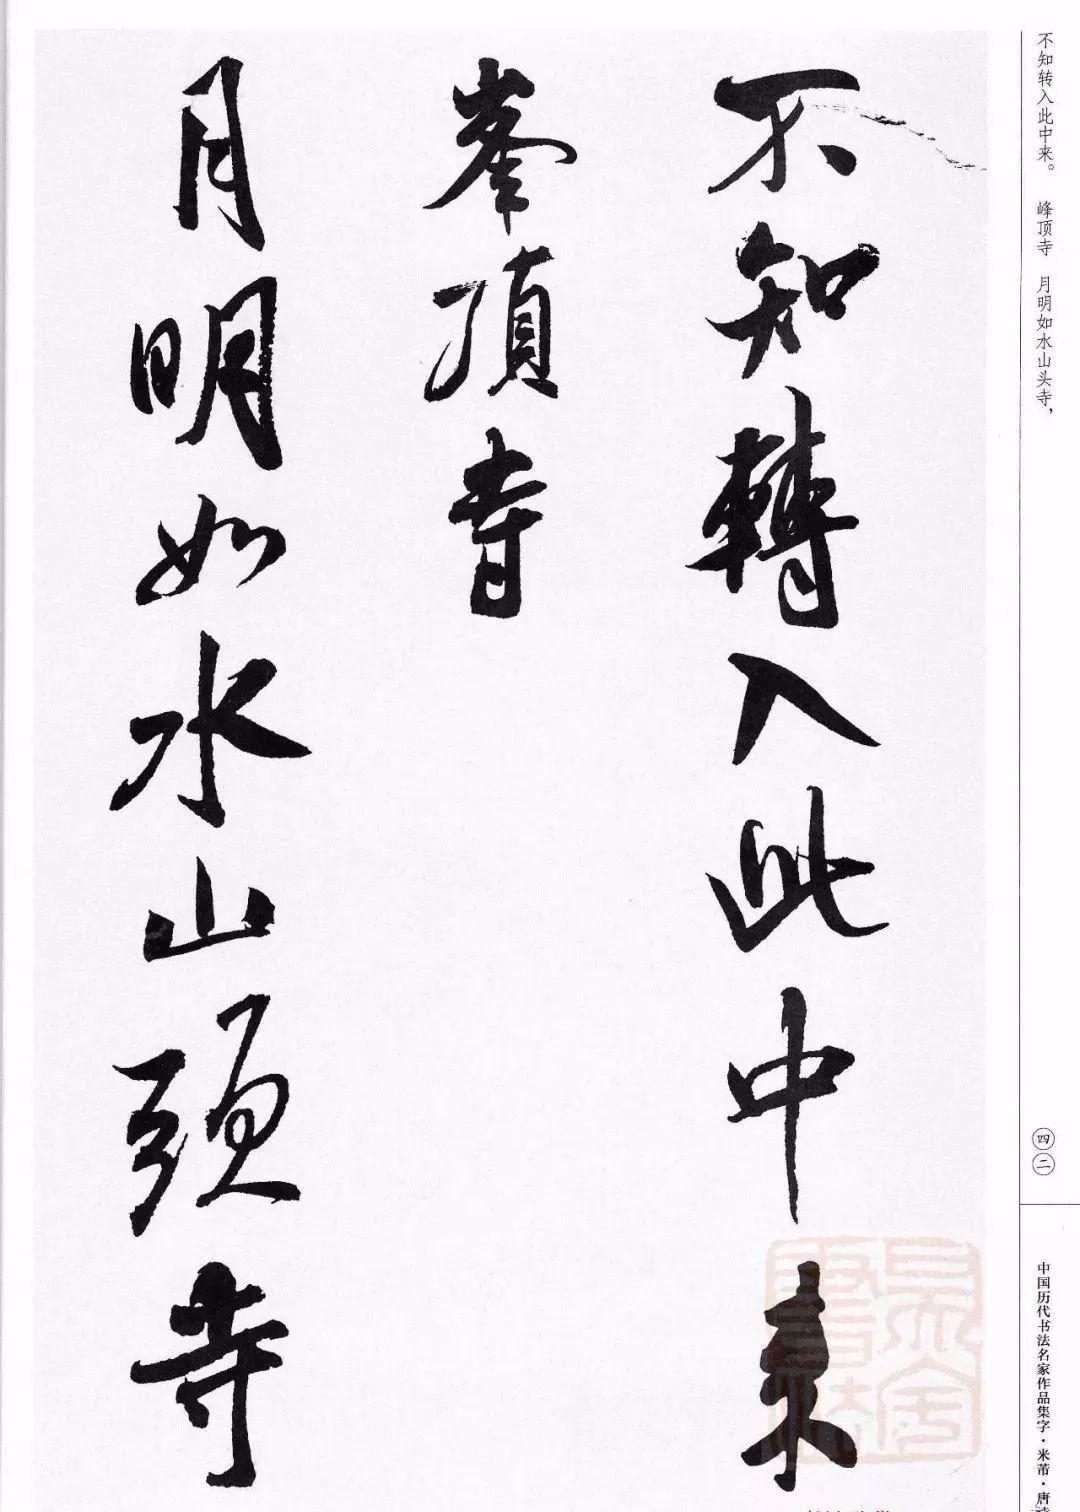 不知转入此中来。 峰顶寺 月明如水山头寺，
四二
中国历代书法名家作品集字·米芾·唐
不知轉入此中来
峯頂寺
月明如水山頭寺